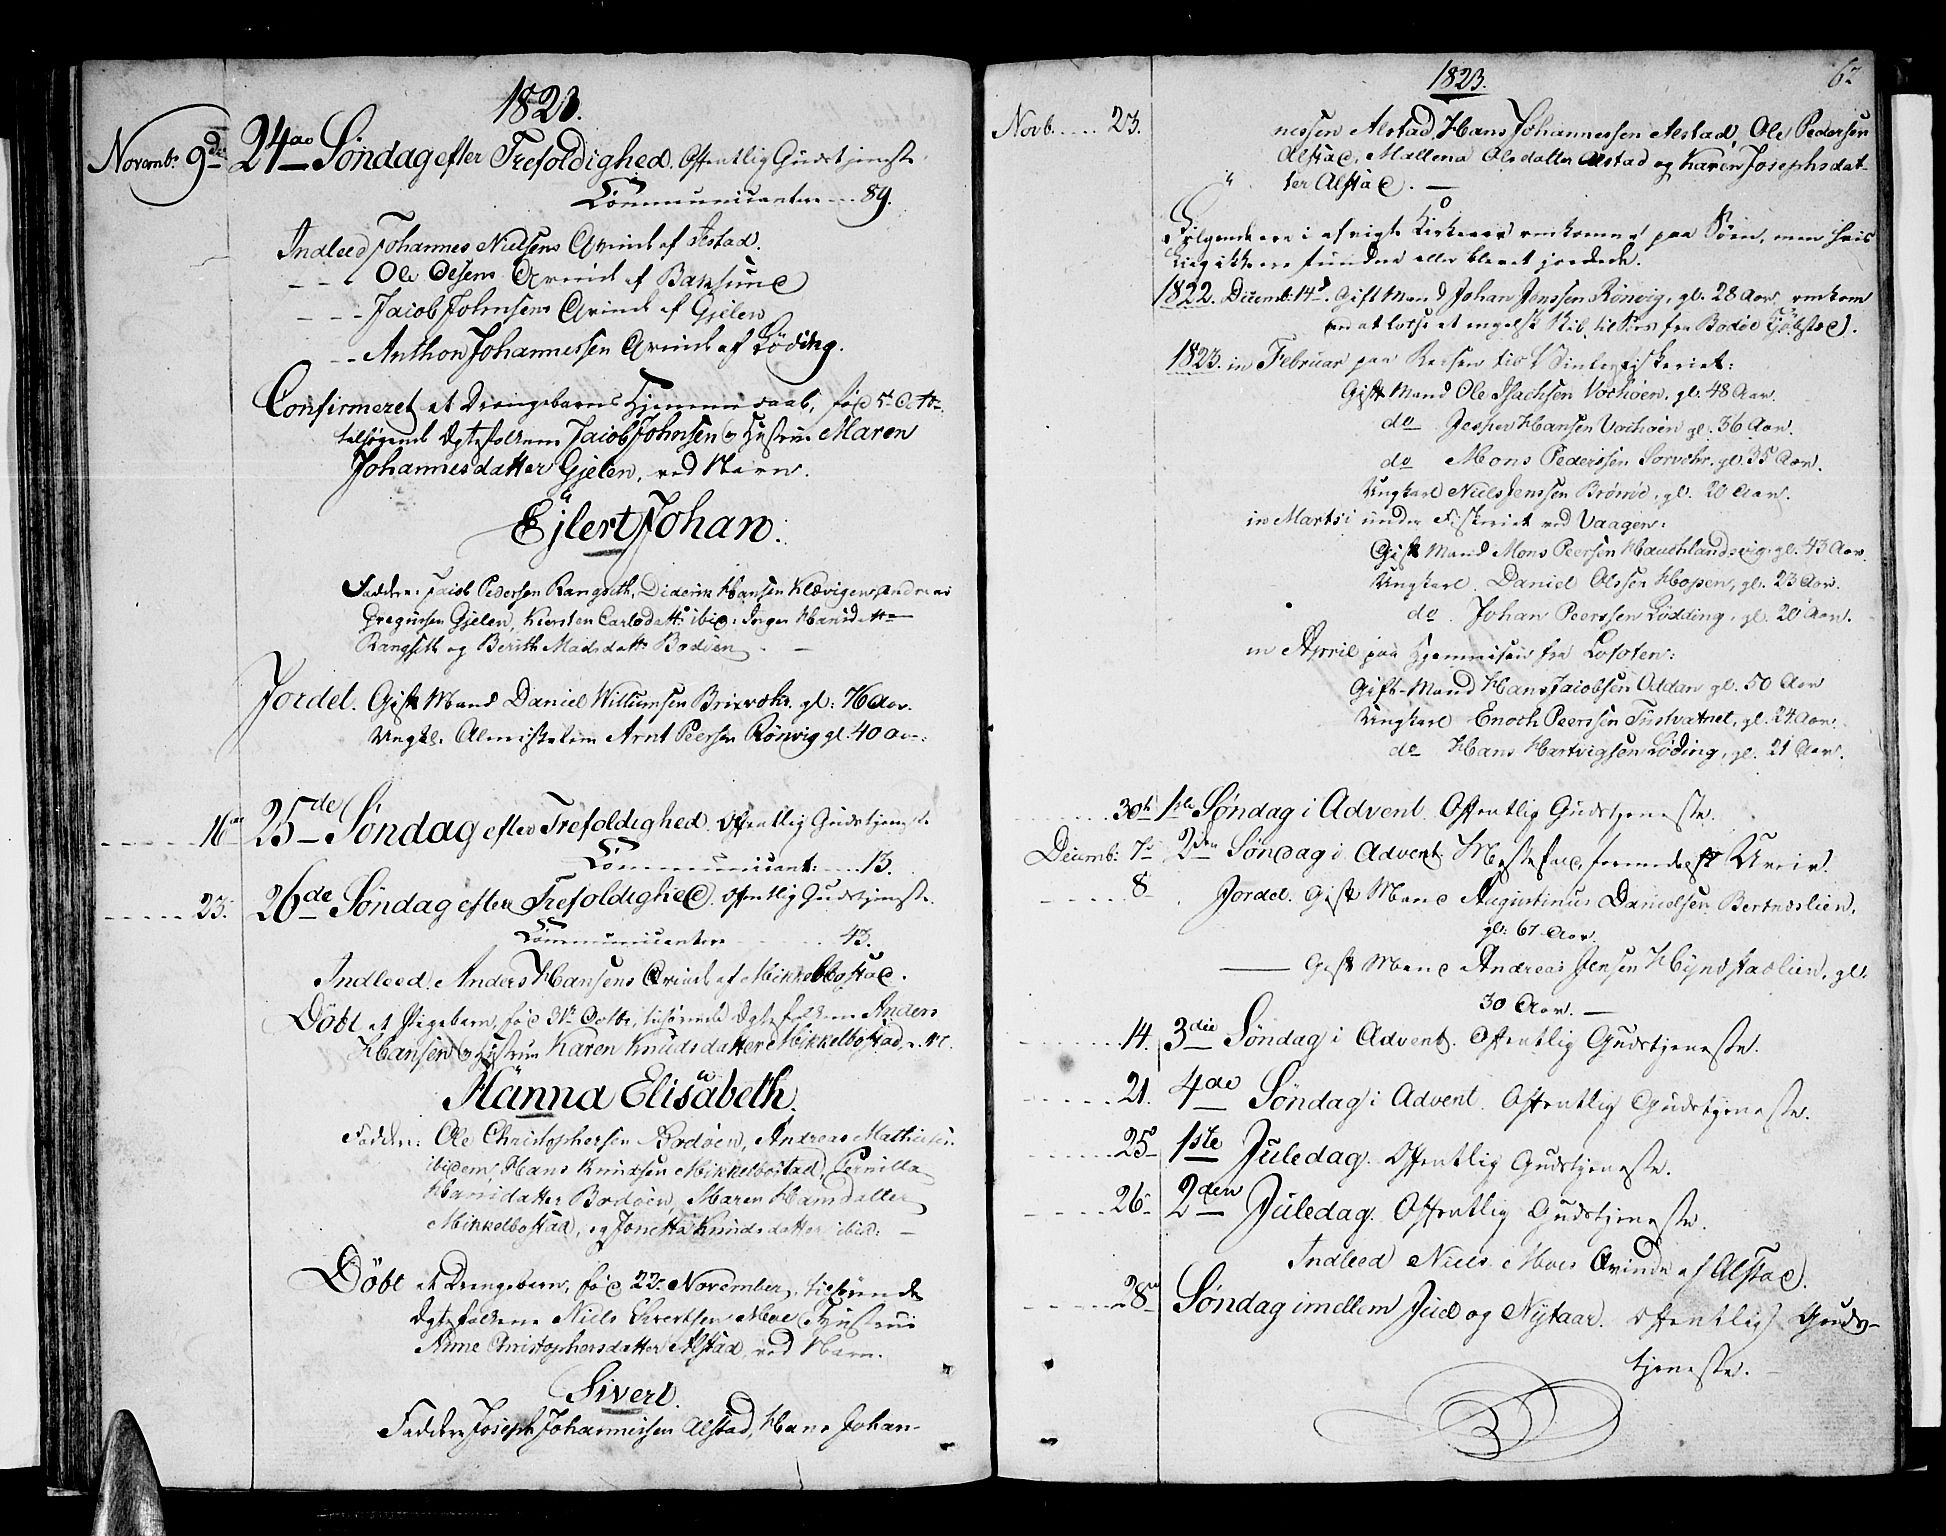 1823.
Novemb: 9de 24de Söndag efter Trefoldighed. Offentlig Gudstjeneste.
Communicantere --- 89.
Indleed Johannes Nielsens Qvinde af Jestad.
--- Ole Olsens Qvinde af Baksund
--- Jacob Johnsens Qvinde af Gjelen
--- Anthon Johannessen Qvinde af Löding.
Confirmeret et Drengebarns Hjemmedaab, fød 5te Octbr.
tilhørende Ægtefolkene Jacob Johnsen og Hustrue Maren
Johannesdatter Gjelen, ved Navn.
Ejlert Johan.
Faddere: Jacob Pedersen Rangseth, Diderik Hansen Klævigen, Andreas
Gregusen Gjelen, Kiersten Carlsdattr ibid: Inger Hansdattr
Rangseth og Berith Madsdattr Bodöen
Jordet. Gift Mand Daniel Willumsen gl: 76 Aar.
Ungk. Almisselem Arnt Peersen Rönvig gl: 40 Aar:
16 25de Söndag efter Trefoldighed. Offentlig Gudstjeneste
Communicant: ---- 13.
23. 26de Söndag efter Trefoldighed. Offentlig Gudstjeneste.
Communicantere ---- 43.
Indleed: Anders Hansens Qvinde af Mikkelbostad.
Döbt et Pigebarn, fød 31te Octbr, tilhørende Ægtefolkene Anders
Hansen og Hustrue Karen Knudsdatter Mikkelbostad, v. N.
Hanna Elisabeth.
Faddere: Ole Christophersen Bodöen, Andreas Mathiesen
ibidem, Hans Knudsen Mikkelbostad, Pernilla
Hansdatter Bodöen, Maren Hansdatter
Mikkelbostad, og Jonetta Knudsdatter ibid:
Döbt et Drengebarn, fød 23. November, tilhørende
Ægtefolkene Niels Evertsen Moe og Hustrue
Anne Christophersdatter Alstad, ved Navn.
Sivert.
Faddere Joseph Johannessen Alstad, Hans Johan-
1823.
62
Novb. .... 23. nessen Alstad, Hans Johannessen Alstad, Ole Pedersen
Alstad, Mallena Olsdatter Alstad og Karen Josephsdat-
ter Alstad.
Følgende ere i afvigte Kirkeaar omkomne paa Søen, men hvis
Liig ikke ere fundne eller blevet jordede.
1822. Decemb: 14d. Gift Mand Johan Jenssen Rönvig, gl. 28 Aar, omkom
ved at lodse et engelsk Skib til Søes fra Bodöe Kjöbsted.
1823. in Februar paa Reisen til Vinterfiskeriet:
Gift Mand Ole Isachsen Vochöen, gl. 48 Aar.
do Jesper Hansen Vochöen gl. 36 Aar.
do Mons Pederssen gl. 35 Aar.
Ungkarl Niels Jenssen gl. 20 Aar.
in Martsi under Fiskeriet ved Vaagen:
Gift Mand Mons Peersen Hauchlandsvig, gl. 43 Aar
Ungkarl Daniel Olssen Hopen, gl. 23 Aar.
do Johan Peerssen Lödding, gl. 20 Aar.
in April paa Hjemreisen fra Lofoten:
Gift-Mand Hans Jacobsen gl. 50 Aar
Ungkarl Enoch Peerssen Tustvatnet, gl. 24 Aar.
do Hans Hartvigsen Löding, gl. 21 Aar.
30te 1ste Söndag i Advent. Offentlig Gudstjeneste.
Decemb: 7de 2den Söndag i Advent. Messefald formedelst Uveir.
8 Jordet. Gift Mand Augustinus Danielsen Bertnæslien,
gl: 67 Aar.
Gift Mand Andreas Jensen Hyndstadlien, gl.
30 Aar.
14. 3die Söndag i Advent. Offentlig Gudstjeneste.
21. 4de Söndag i Advent. Offentlig Gudstjeneste.
25 1ste Juledag. Offentlig Gudstjeneste.
26 2den Juledag. Offentlig Gudstjeneste.
Indleed Niels Moes Qvinde af Alstad.
28 Söndag imellem Juul og Nytaar. Offentlig Guds-
tjeneste.